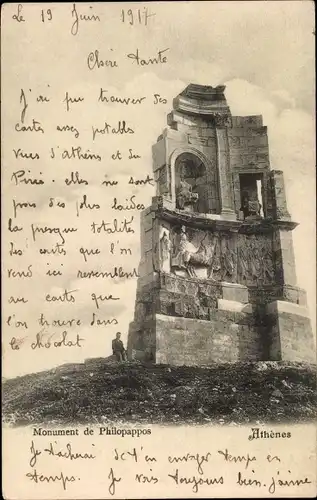 Le 19 Juin 1917
Chère Tante
J'ai pu trouver des
cartes assez potables
vues d'Athéns et du
Pirée. elles ne sont
pas des plus laides
la presque totalités
des carts que l'on
vend ici resemblent
au carts que
l'on trouve dans
le chocolat
Monument de Philopappos
Athènes
Je t'acherai d't'en envoyer temps en
temps. Je vais toujours bien, j'aime